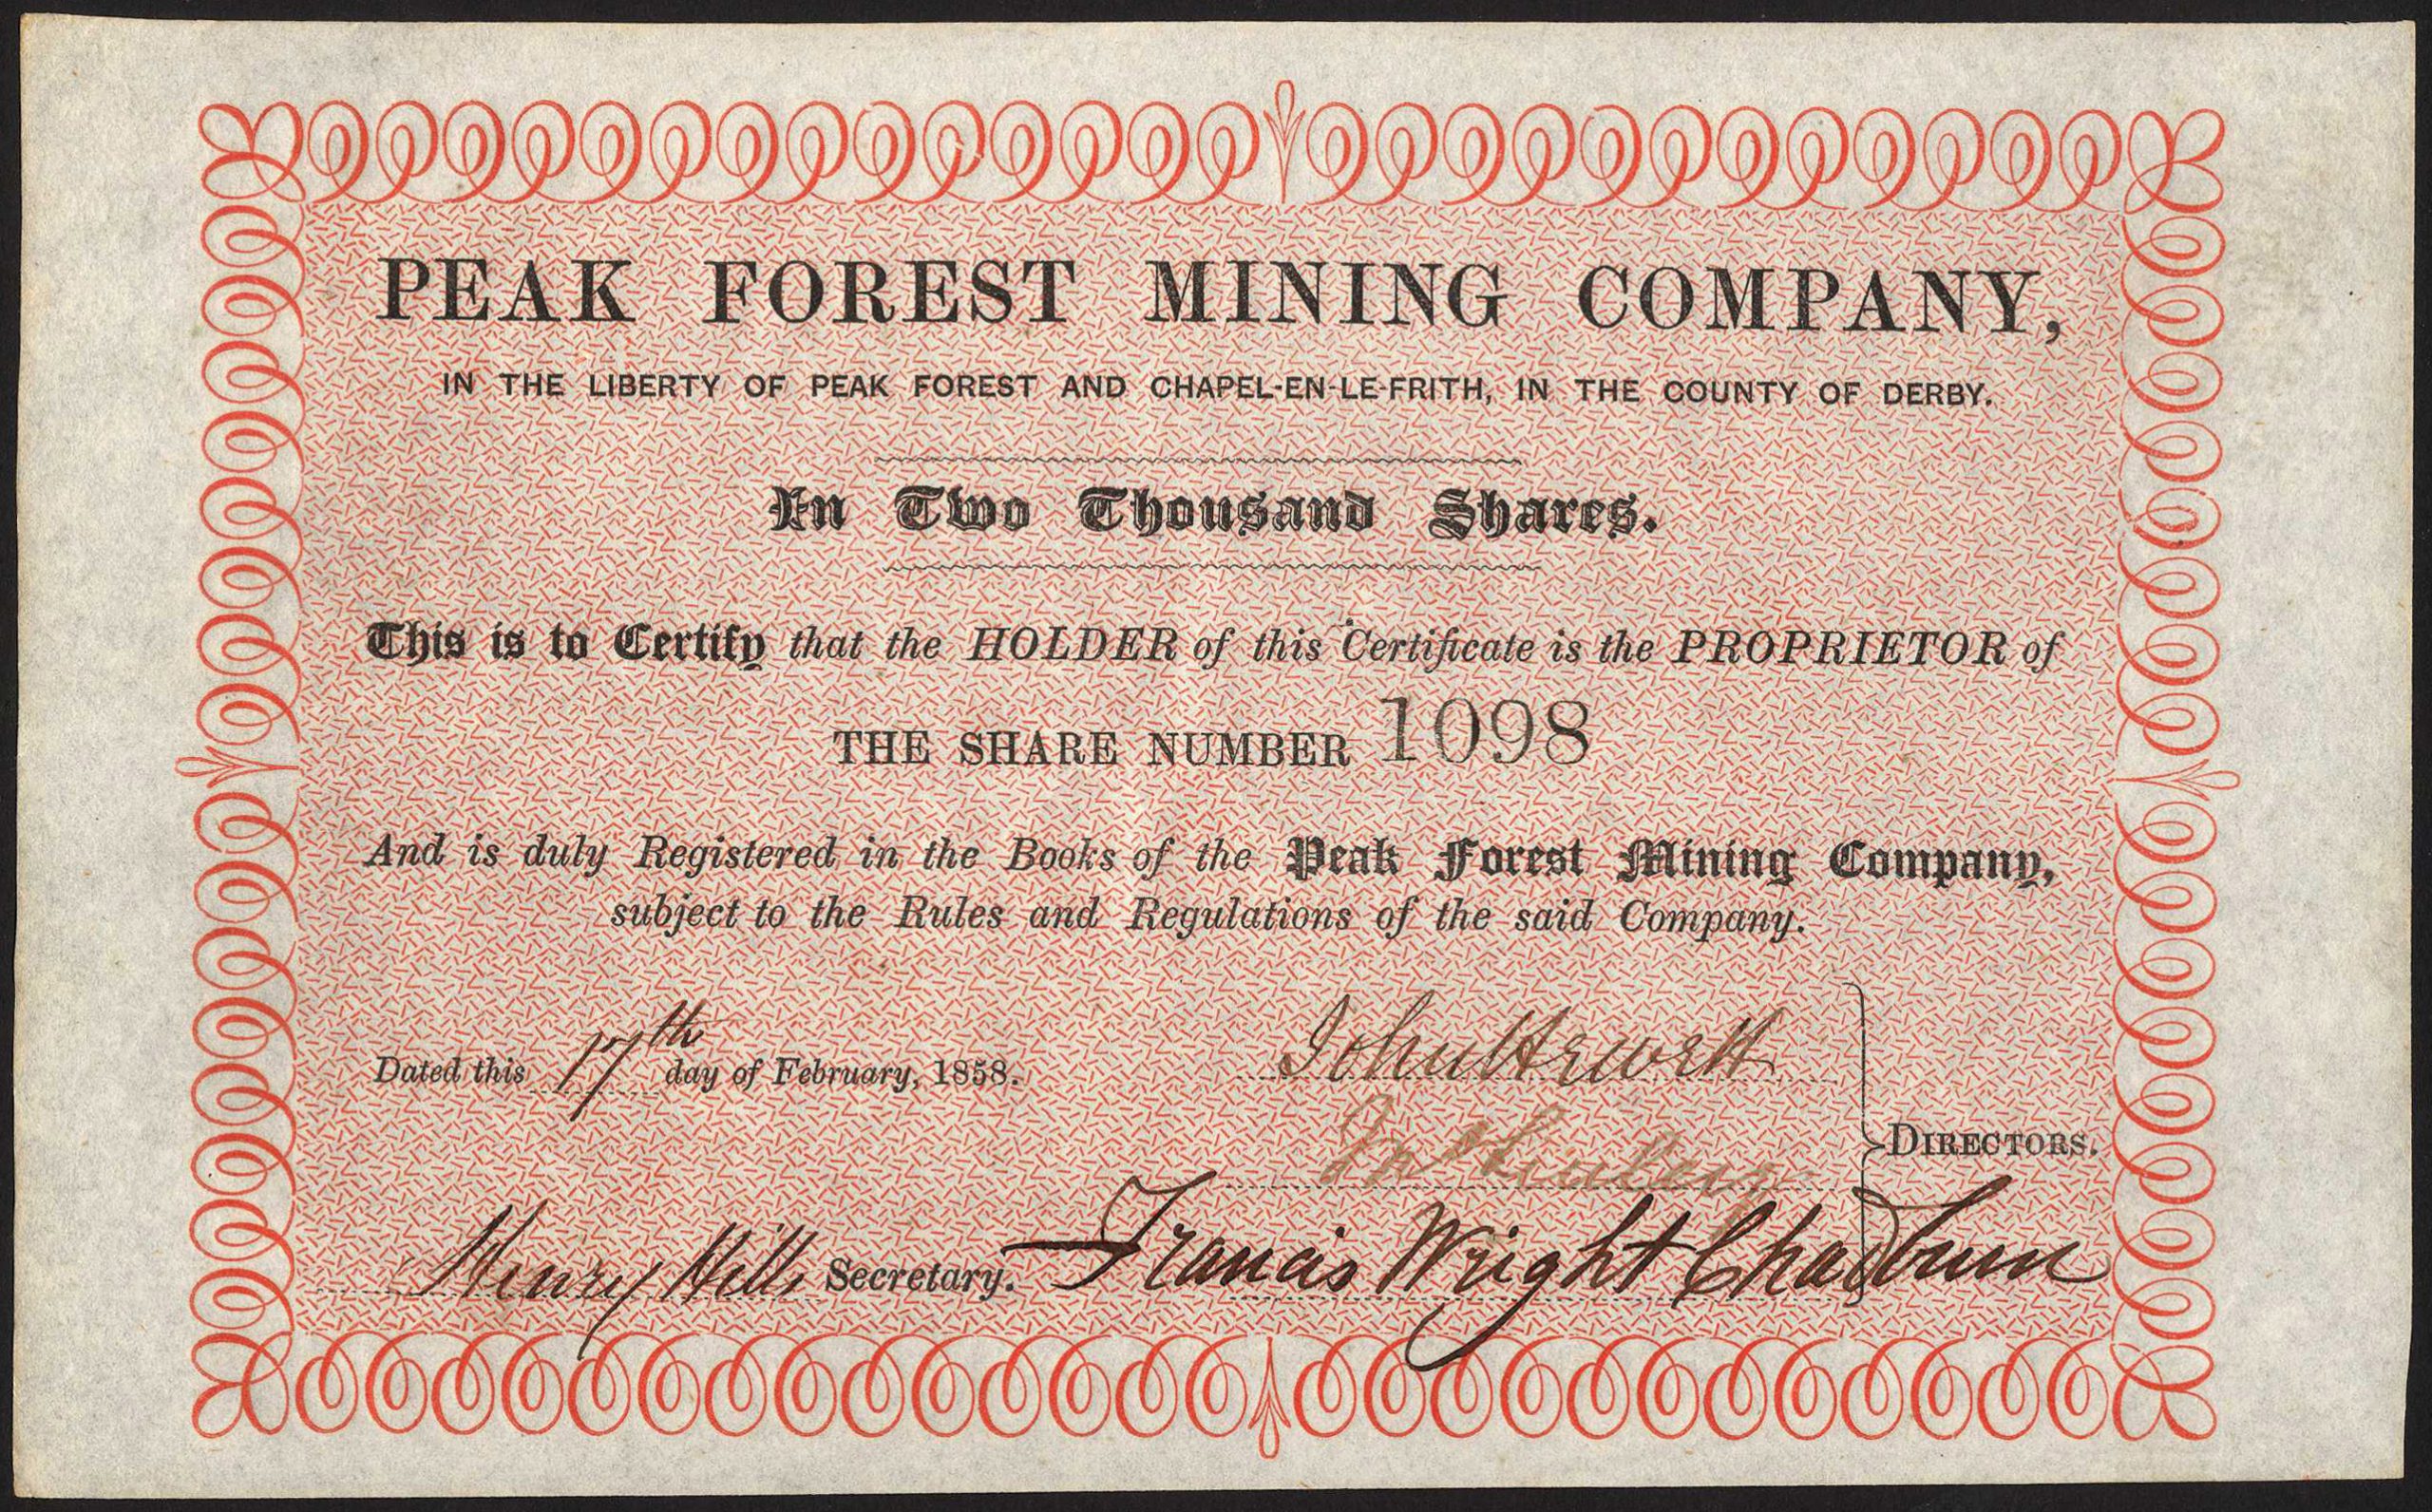 PEAK FOREST MINING COMPANY,
IN THE LIBERTY OF PEAK FOREST AND CHAPEL-EN-LE-FRITH, IN THE COUNTY OF DERBY.
In Two Thousand Shares.
This is to Certify that the HOLDER of this Certificate is the PROPRIETOR of
THE SHARE NUMBER 1098
And is duly Registered in the Books of the Peak Forest Mining Company,
subject to the Rules and Regulations of the said Company.
Dated this 17th day of February, 1858.
John Hewett
DIRECTORS.
Henry Hills Secretary.
Francis Wright Chadburn